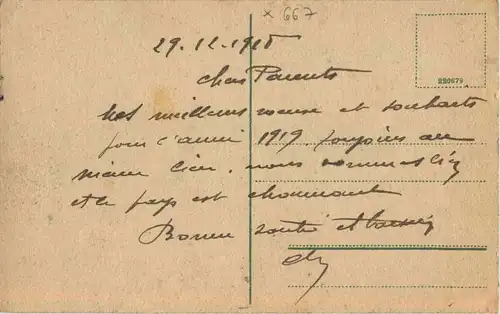 × 667
29.12.1918
220679
Chers Parents
Mes meilleurs voeux et souhaits
pour l'année 1919. toujours au
même lieu. nous sommes bien
et le pays est charmant
Bonne santé et baisers